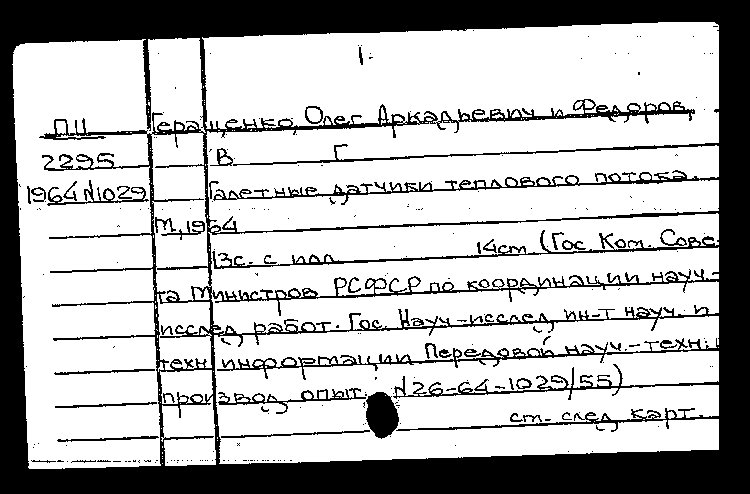 1.
ПII Геращенко, Олег Аркадьевич и Федоров,
2295 В Г
1964 N1029 Галетные датчики теплового потока.
М, 1964
13с. с илл 14см. (Гос. Ком. Сове-
та Министров РСФСР по координации науч.-
исслед работ. Гос. Науч-исслед ин-т науч. и
техн информации Передовой науч.-техн. и
производ опыт. N26-64-1029/55)
см. след карт.